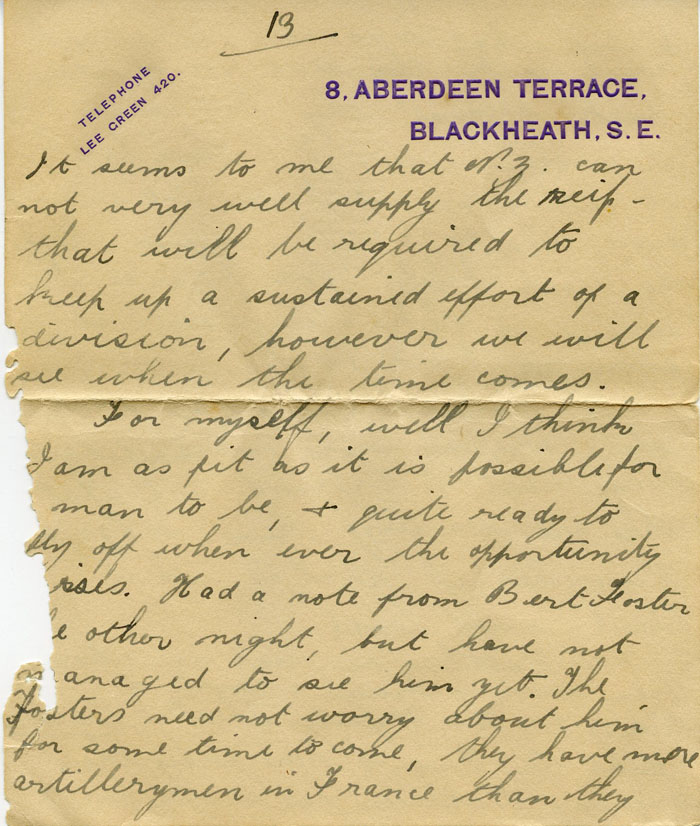 13
TELEPHONE
LEE GREEN 420.
8, ABERDEEN TERRACE,
BLACKHEATH, S.E.
It seems to me that N.Z. can
not very well supply the reif-
that will be required to
keep up a sustained effort of a
division, however we will
see when the time comes.
For myself, well I think
I am as fit as it is possible for
man to be, & quite ready to
off when ever the opportunity
rises. Had a note from Bert Foster
e other night, but have not
managed to see him yet. The
Fosters need not worry about him
for some time to come, they have more
artillerymen in France than they